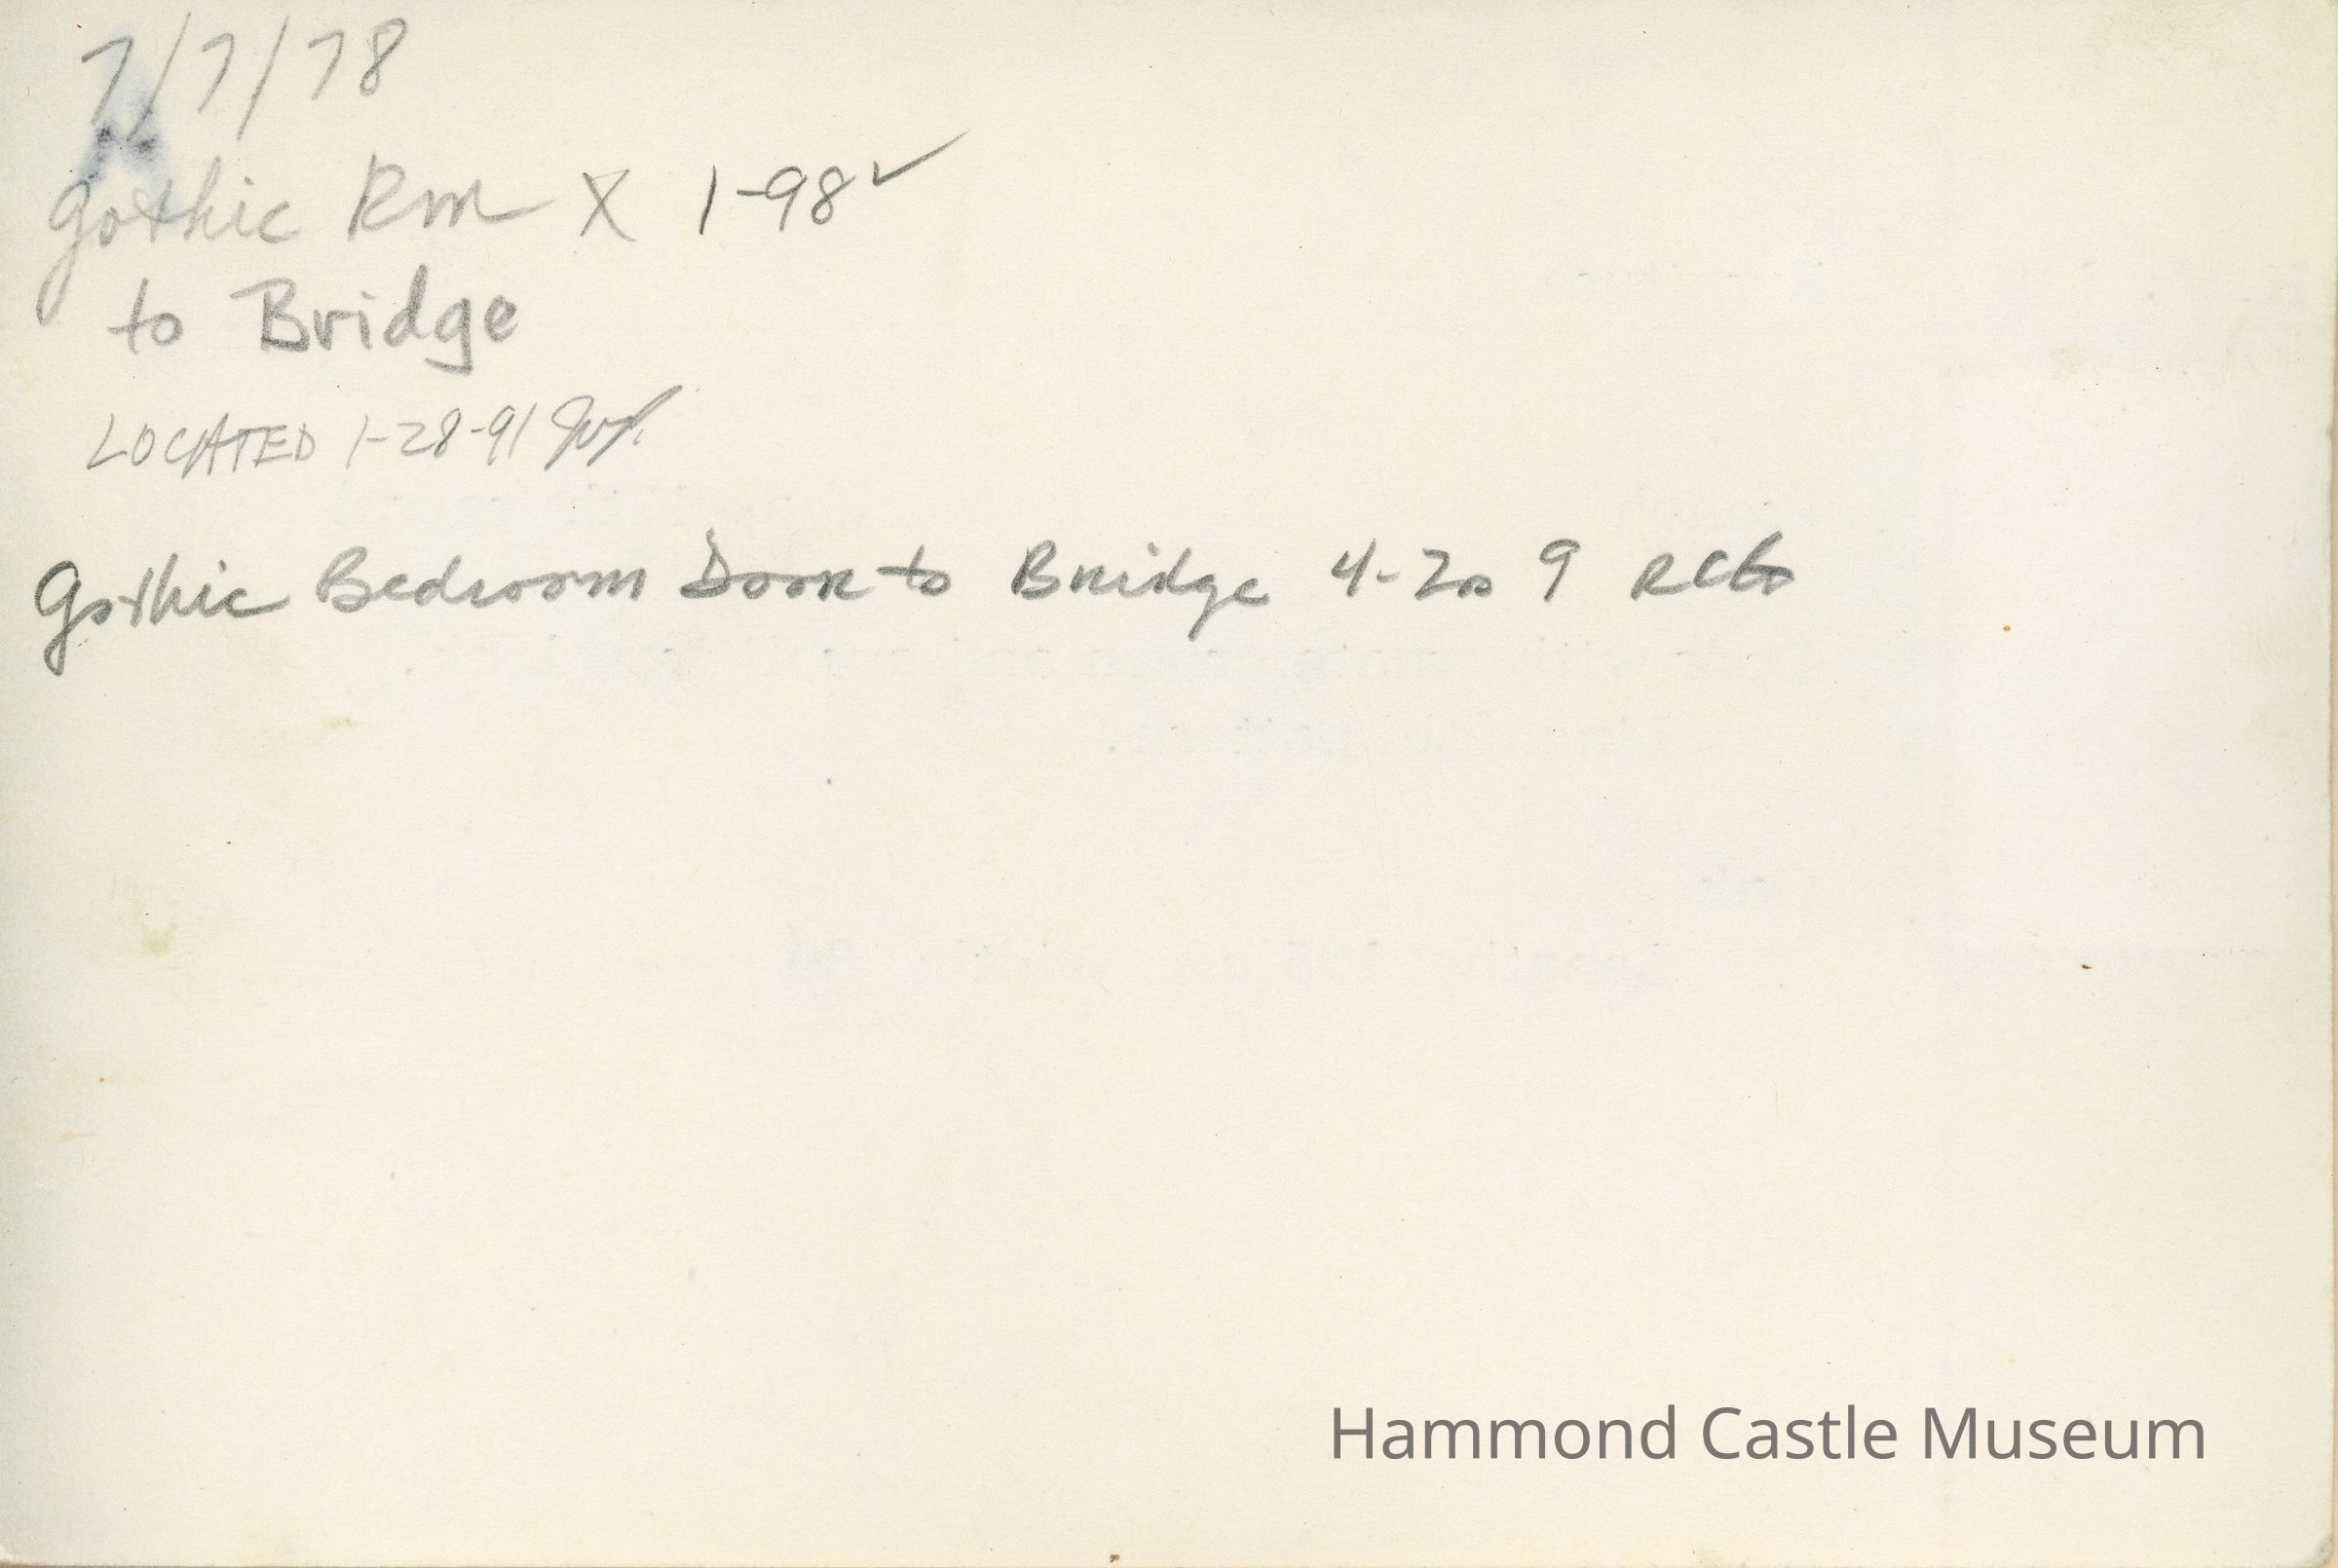 7/7/78
Gothic Rm X 1-98 ✓
to Bridge
LOCATED 1-28-91
Gothic Bedroom Door to Bridge 4-20 9
Hammond Castle Museum